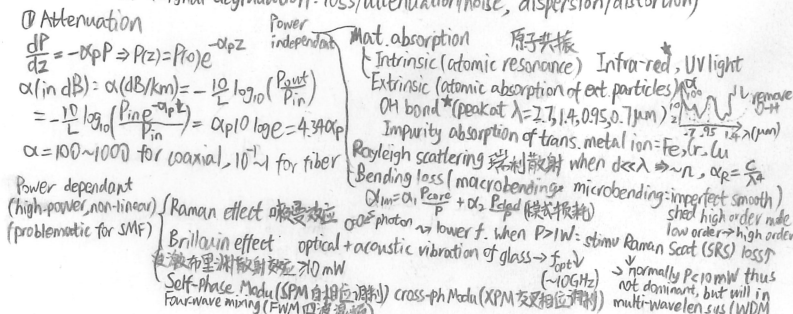 signal degradation: loss/attenuation/noise, dispersion/distortion)
① Attenuation
dP/dz = -αpP ⇒ P(z) = P(0)e^-αpz
α(in dB): α(dB/km) = -10/L log10(Pout/Pin)
= -10/L log10(Pine^-αpL/Pin) = αp10loge = 4.34αp
α = 100~1000 for coaxial, 10^-1~1 for fiber
Power independant
Mat. absorption 原子共振
Intrinsic (atomic resonance) Infra-red*, UV light
Extrinsic (atomic absorption of ext. particles)
OH bond* (peak at λ=2.7, 1.4, 0.95, 0.7μm)
remove O-H
.7 .95 1.4 λ(μm)
Impurity absorption of trans. metal ion = Fe, Cr, Cu
Rayleigh scattering 瑞利散射 when d<<λ ⇒ ~n, αR = C/λ4
Bending loss (macrobending microbending: imperfect smooth)
αlm = α1 Pcore/P + α2 Pclad/P (模式损耗)
shed high order mode
low order → high order
Power dependant
(high-power, non-linear)
(problematic for SMF)
Raman effect 喇曼效应 photon → lower f. when P>1W: stimu Raman Scat (SRS) loss↑
Brillouin effect optical + acoustic vibration of glass → fopt↓
(~10GHz)
布里渊散射效应 ≥10mW
normally P<10mW thus
not dominant, but will in
multi-wavelen sys (WDM
Self-Phase Modu (SPM 自相位调制) cross-ph Modu (XPM 交叉相位调制)
Four wave mixing (FWM 四波混频)